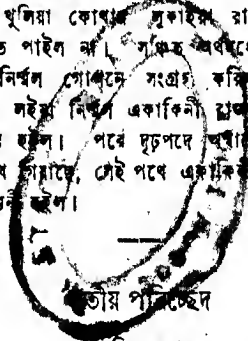 খুলিয়া কোথায় লুকাইয়া রা
ত পাইল না। সঞ্চিত অর্থমধ্যে
নির্ম্মল গোপনে সংগ্রহ করি
লইয়া নির্ম্মল একাকিনী রাজ
হইল। পরে দৃঢ়পদে
গিয়াছে, সেই পথে একাকি
হইল।
তৃতীয় পরিচ্ছেদ